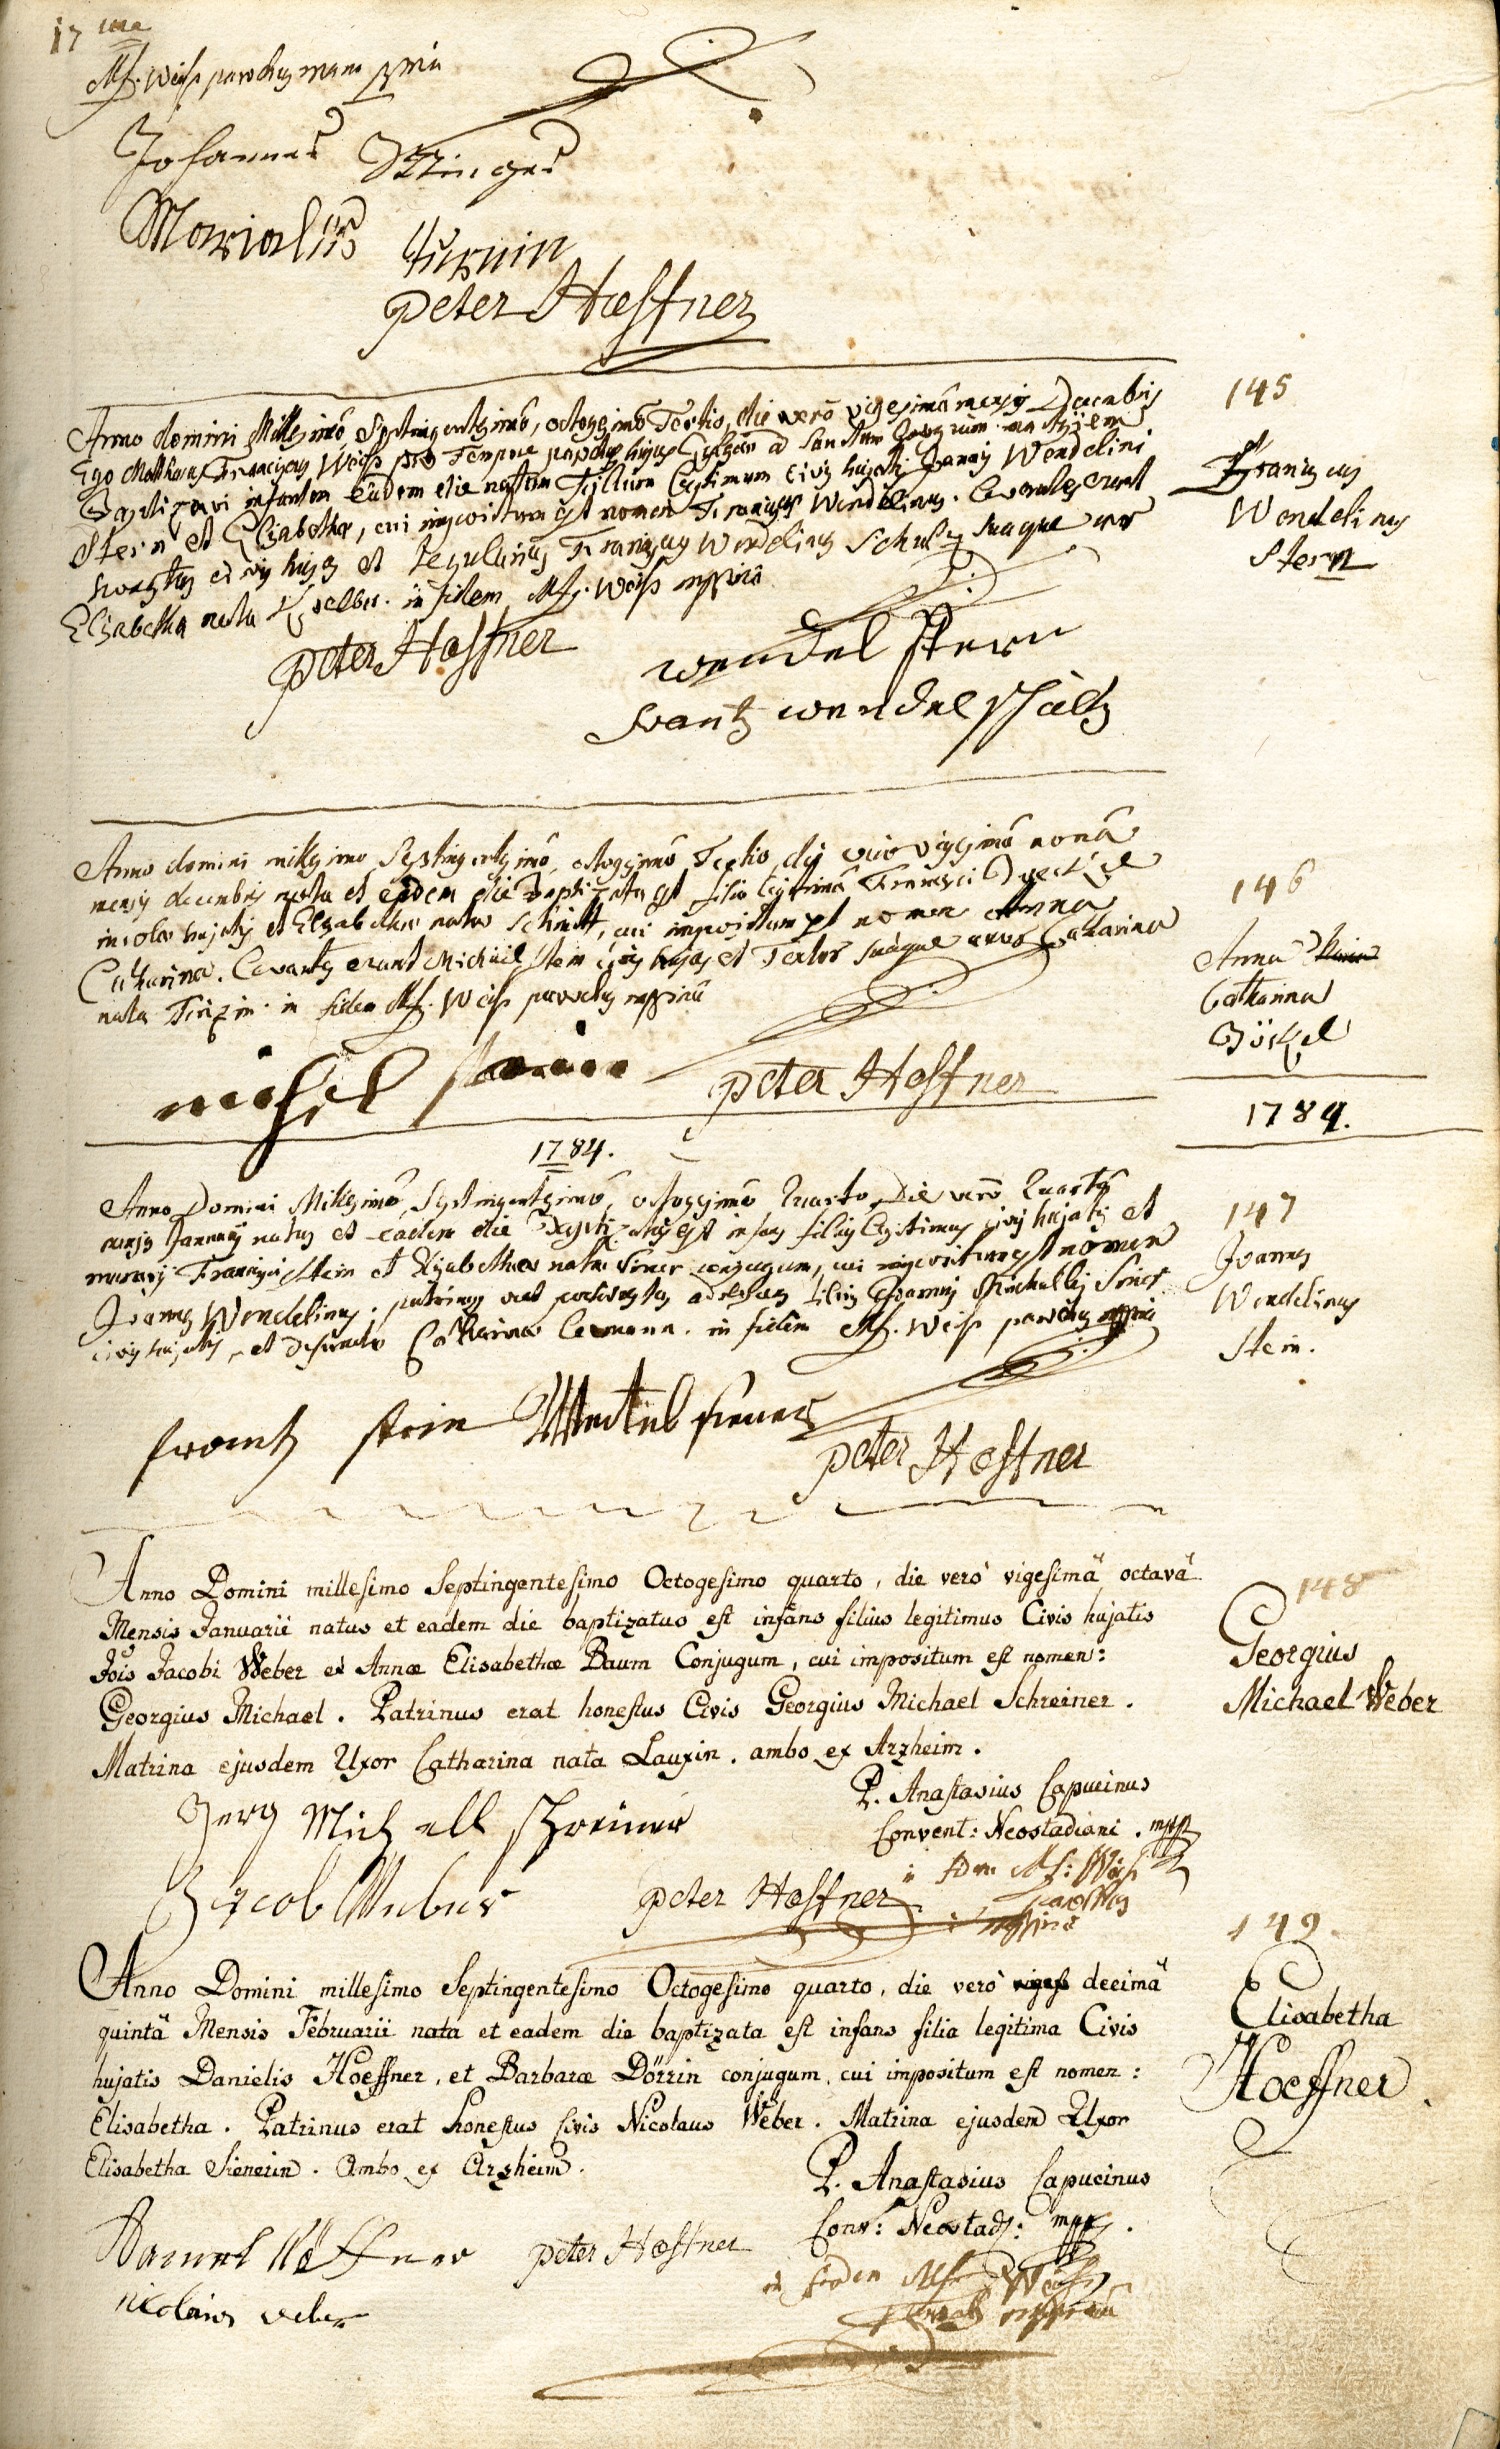 17 ma
Mf. Weiss parochus manu ppria
Johannes
Peter Hoeffner
145
Anno domini Millesimo, Septingentesimo, octogesimo Tertio, die verò vigesima mensis Decembris
Ego Matthaeus Franciscus Weiss pro Tempore parochus hujus Ecclesiae ad Sanctum Georgium martyrem
Baptizavi infantem Eadem die natum Filium Legitimum Civis hujatis Joannis Wendelini
Stern et Elisabethae, cui impositum est nomen Franciscus Wendelinus. Levantes erant
honestus civis hujas et Franciscus Wendelinus Schultz suaque uxor
Elisabetha nata in fidem Mf. Weiss mppriâ
Franciscus
Wendelinus
Stern
Peter Hoeffner
wendel stern
frantz wendel schultz
146
Anno domini millesimo Septingentesimo, octogesimo Tertio, die vero vigesimâ nonâ
mensis decembris nata et eadem die Baptizata est filia legitima Francisci
incolae hujatis et Elisabethae natae Schmitt, cui impositum est nomen Anna
Catharina. Levantes erant Michael Stein civis hujas et Textor suaque uxor Catharina
nata in fidem Mf. Weiss parochus mppriâ
Anna
Catharina
michel stein
Peter Hoeffner
1784.
1784.
147
Anno Domini Millesimo, Septingentesimo, octogesimo Quarto, Die verò Quartâ
mensis Januarij natus et eadem die Baptizatus est infans filius legitimus civis hujatis et
Francisci Stein et Elisabethae natae Siener conjugum, cui impositum est nomen
Joannes Wendelinus. patrinus erat adolescens filius Joannis Michaelis Siener
civis hujatis, et defunctae Catharinae in fidem Mf. Weiss parochus mppriâ
Joannes
Wendelinus
Stein.
frantz stein Wentel siener
Peter Hoeffner
148
Anno Domini millesimo Septingentesimo Octogesimo quarto, die verò vigesimâ octavâ
Mensis Januarii natus et eadem die baptizatus est infans filius legitimus Civis hujatis
Jõis Jacobi Weber et Annæ Elisabethæ Baum Conjugum, cui impositum est nomen:
Georgius Michael. Patrinus erat honestus Civis Georgius Michael Schreiner.
Matrina ejusdem Uxor Catharina nata Lauxin. ambo ex Arzheim.
Georgius
Michael Weber
P. Anastasius Capucinus
Convent: Neostadiani. mpp
Jerg Michell Schreiner
Jacob Weber
Peter Hoeffner
in fidem Mf: Weiss
parochus
mppriâ
149.
Anno Domini millesimo Septingentesimo Octogesimo quarto, die verò decimâ
quintâ Mensis Februarii nata et eadem die baptizata est infans filia legitima Civis
hujatis Danielis Hoeffner, et Barbaræ Dörrin conjugum, cui impositum est nomen:
Elisabetha. Patrinus erat honestus Civis Nicolaus Weber. Matrina ejusdem Uxor
Elisabetha Sienerin. Ambo ex Arzheim.
Elisabetha
Hoeffner.
P. Anastasius Capucinus
Conv: Neostad: mpp.
Daniel Höffner Peter Hoeffner
nicolaus veber
in fidem Mf. Weiss
mppriâ